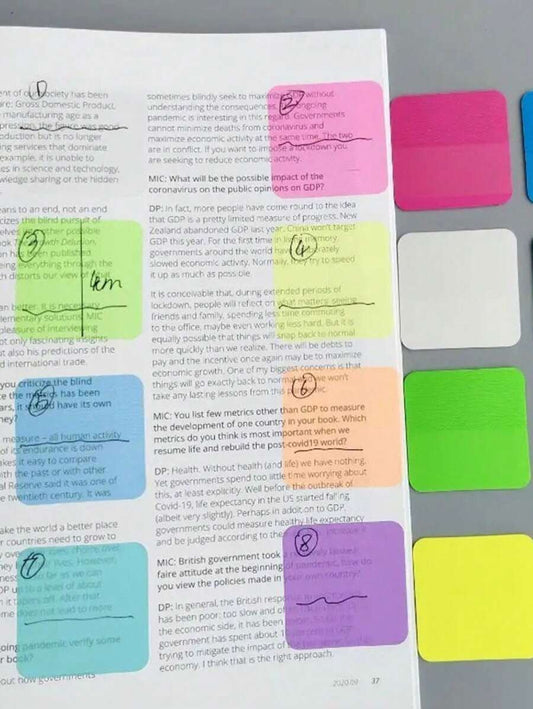 1
ent of our society has been
ure: Gross Domestic Product,
manufacturing age as a
pression, the figure was good
oduction but is no longer
ng services that dominate
example, it is unable to
es in science and technology,
wledge sharing or the hidden
eans to an end, not an end
cizes the blind pursuit of
elves other possible
ook The Growth Delusion,
on has been published
eing everything through the
h distorts our view of
3
4cm
an better. It is necessary
lementary solutions. MIC
pleasure of interviewing
ot only fascinating insights
ut also his predictions of the
d international trade.
you criticize the blind
e the metrics has been
ars, it should have its own
ney?
5
measure – all human activity
of its endurance is down
akes it easy to compare
ith the past or with other
al Reserve said it was one of
e twentieth century. It was
ake the world a better place
r countries need to grow to
7
DP up to a level about
n it tapers off. After that
me does not lead to more
oing pandemic verify some
r book?
out how governments
sometimes blindly seek to maximize GDP without
understanding the consequences. The ongoing
pandemic is interesting in this regard. Governments
cannot minimize deaths from coronavirus and
maximize economic activity at the same time. The two
are in conflict. If you want to impose a lockdown you
are seeking to reduce economic activity.
2
MIC: What will be the possible impact of the
coronavirus on the public opinions on GDP?
DP: In fact, more people have come round to the idea
that GDP is a pretty limited measure of progress. New
Zealand abandoned GDP last year. China won't target
GDP this year. For the first time in living memory,
governments around the world have deliberately
slowed economic activity. Normally, they try to speed
it up as much as possible.
4
It is conceivable that, during extended periods of
lockdown, people will reflect on what matters: seeing
friends and family, spending less time commuting
to the office, maybe even working less hard. But it is
equally possible that things will snap back to normal
more quickly than we realize. There will be debts to
pay and the incentive once again may be to maximize
economic growth. One of my biggest concerns is that
things will go exactly back to normal and we won't
take any lasting lessons from this pandemic.
6
MIC: You list few metrics other than GDP to measure
the development of one country in your book. Which
metrics do you think is most important when we
resume life and rebuild the post-covid19 world?
DP: Health. Without health (and life) we have nothing.
Yet governments spend too little time worrying about
this, at least explicitly. Well before the outbreak of
Covid-19, life expectancy in the US started falling
(albeit very slightly). Perhaps in addition to GDP,
governments could measure healthy life expectancy
and be judged according to the
8
MIC: British government took a relatively laissez
faire attitude at the beginning of pandemic, how do
you view the policies made in your own country?
DP: In general, the British response
has been poor: too slow and
the economic side, it has been
government has spent about
trying to mitigate the impact of
economy. I think that is the right approach.
2020.09 37